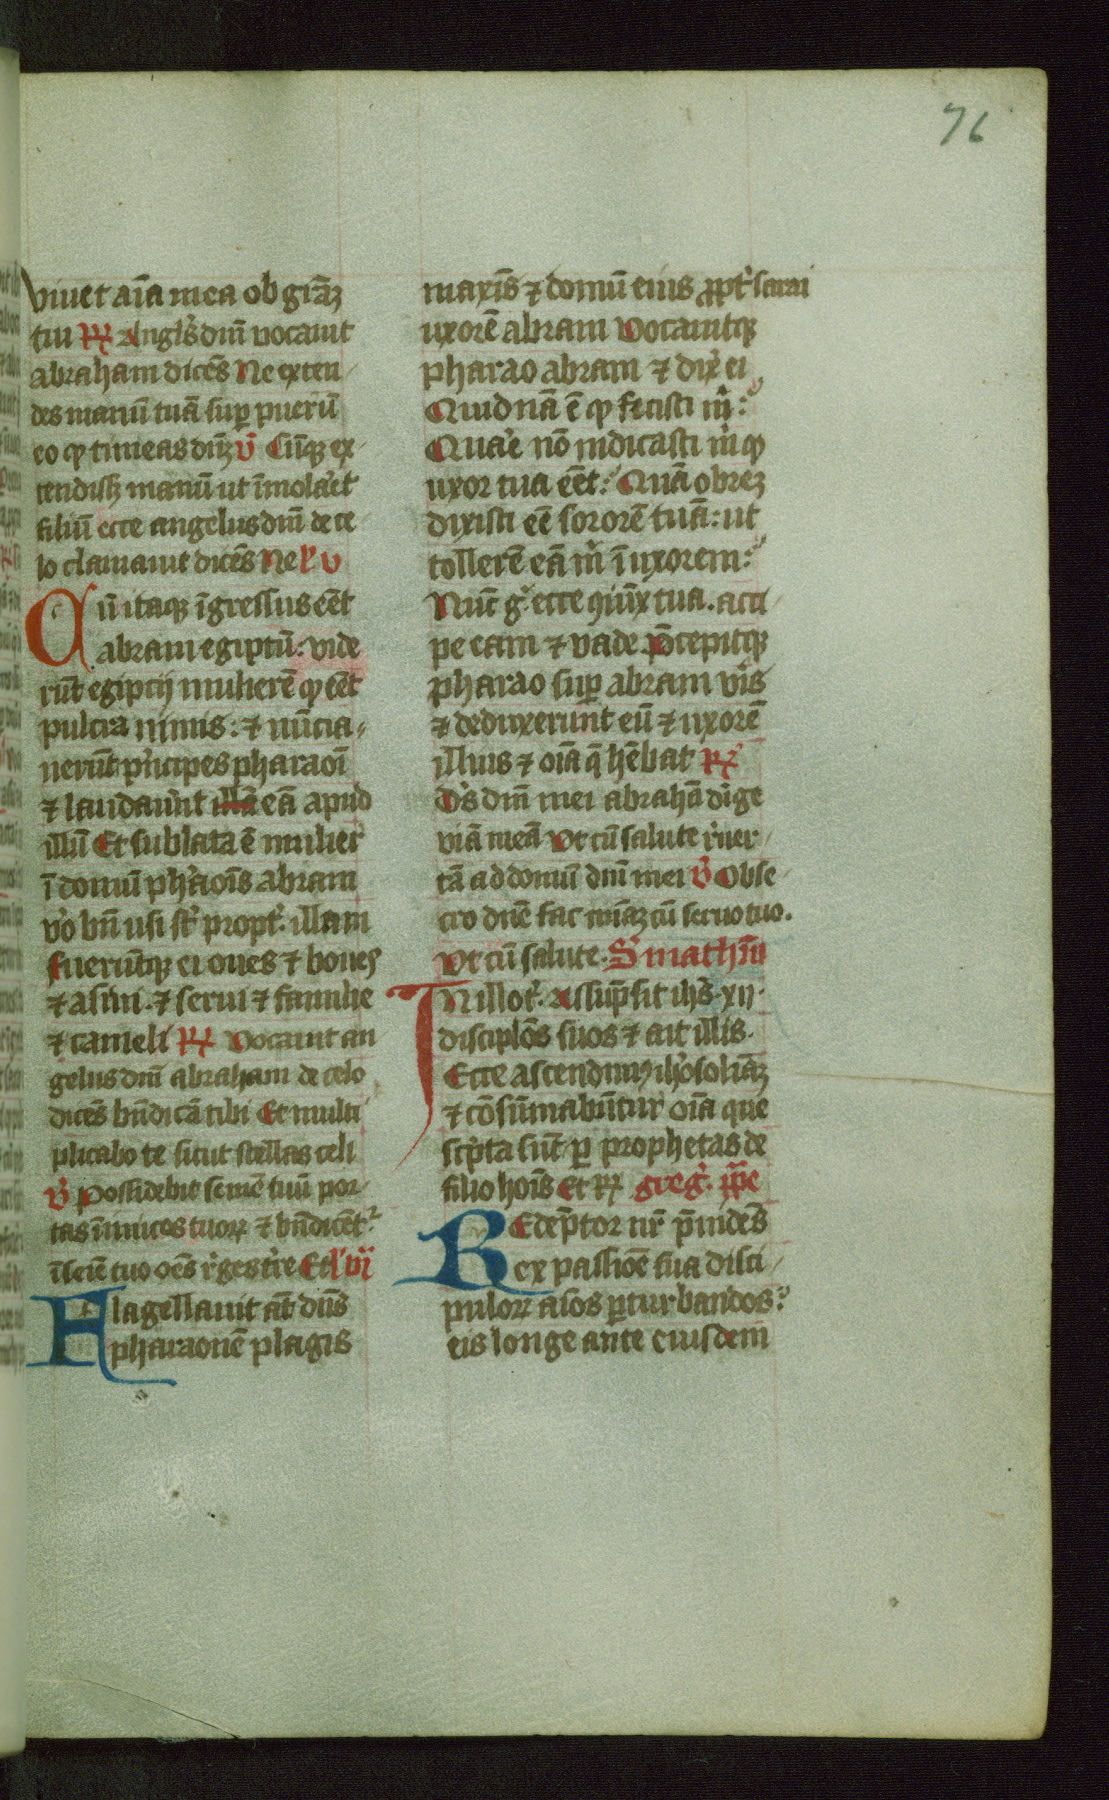 76
viuet aīa mea ob gr̄aʒ
tui R⁊ Angl's dn̄i vocauit
abraham dicēs Ne exten-
das manū tuā sup̱ puerū
eo qͥ timeas dn̄ʒ v̄ Cūqꝫ ex-
tendissꝫ manū ut īmolar̄et
filiū ecce angelus dn̄i de ce
lo clamauit dicēs Ne l' v
Cū itaqꝫ īgressus eēt
abram egiptū: vide
rūt egiptij mulierē qͥ eēt
pulcra nimis: ⁊ nūcia-
uerūt p'ncipes pharaoī
⁊ laudauer̄t eā apud
illū Et sublata ē mulier
ī domū ph'aoīs abram
v̄o bn̄ usi st̄ propt̄ illam
fuerūtqꝫ ei oues ⁊ boues
⁊ asini ⁊ serui ⁊ famlie
⁊ cameli R⁊ Vocauit an
gelus dn̄i abraham de celo
dicēs bn̄dicā tibi Et multi
plicabo te sicut stellas celi
V̄ Possidebit semē tuū por-
tas īimicoꝝ tuoꝝ ⁊ bn̄dicēt̄
ī seīe tuo oēs g'ges t're Et l' viij
Flagellauit aūt dn̄s
pharaonē plagis
maxīs ⁊ domū eius ꝓpt̄ sarai
uxorē abram Vocauitqꝫ
pharao abram ⁊ dix̄ ei
Quid nā ē qͥ fecisti m̄:
Quar̄e nō indicasti m̄ qͥ
uxor tua eēt: Quā ob reʒ
dixisti eē sororē tuā: ut
tollerē eā m̄ ī uxorem:
Nūc g° ecce ꝯiūx tua. acci-
pe eam ⁊ vade p̄cepitqꝫ
pharao sup̱ abram vir̄s
⁊ deduxerunt eū ⁊ uxorē
illius ⁊ oīa q̄ hēbat R⁊
D's dn̄i mei abrahā dir̄ge
viā meā Vt cū salute r̄uer-
tā ad domū dn̄i mei V̄ Obse-
cro dn̄e fac mīaʒ cū seruo tuo.
Vt cū salute. S' mathīu
In illo t̄. Assūpsit ih̄s xij.
disciplōs suos ⁊ ait illis.
Ecce ascendim' ih'osolimāʒ
⁊ cōsūmabūtur oīa que
scp̄ta sūt p̱ prophetas de
filio hoīs Et R⁊ greg'. pp̄e
Redēptor nr̄ p̄uidēs
ex passiōe sua disci-
puloꝝ aīos p̱turbandos:
eis longe ante eiusdem